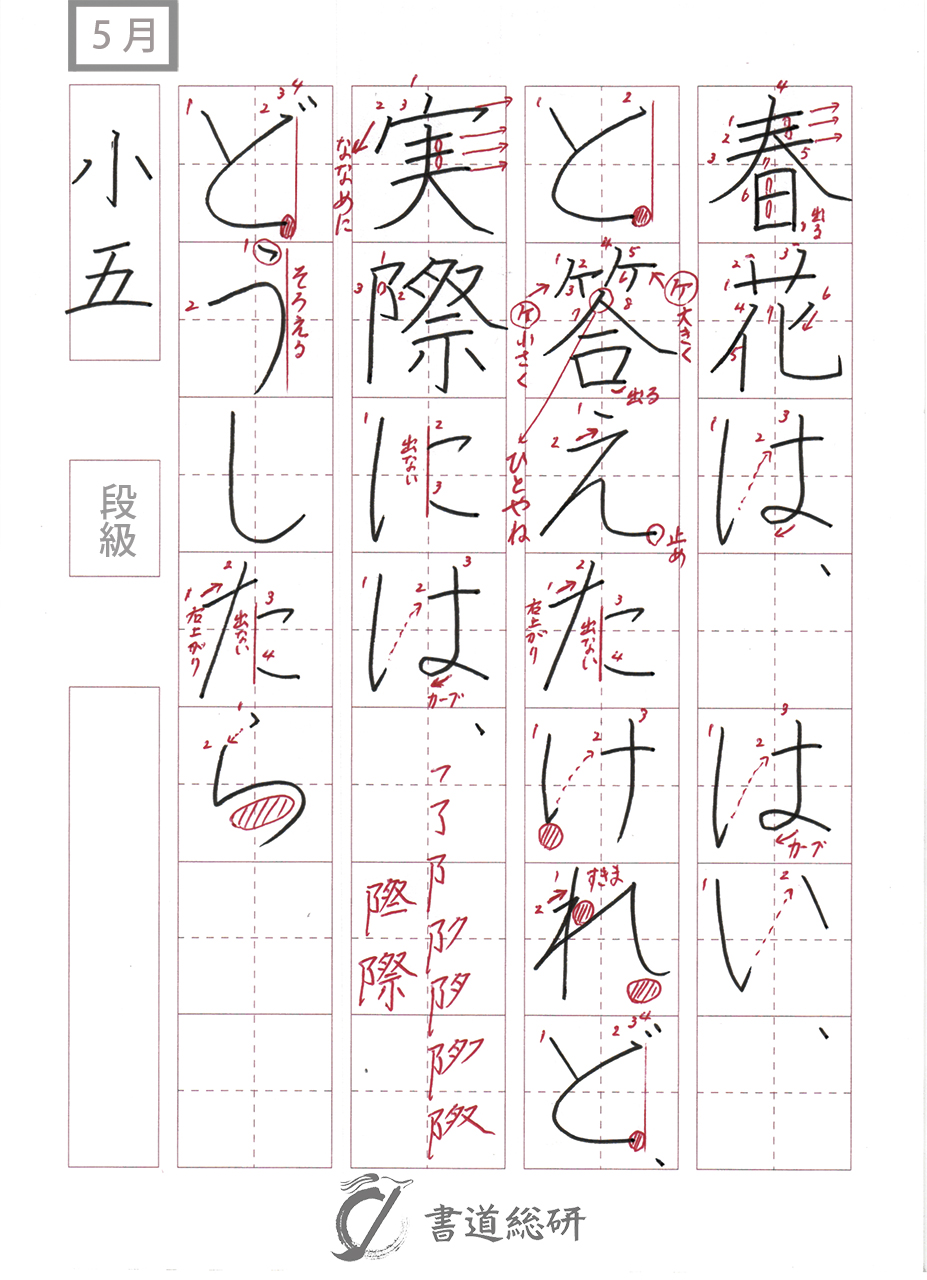 5月
春花は、はい、
と答えたけれど、
実際には、
どうしたら
小五
段級
出る
カーブ
大きく
小さく
出る
ひとやね
止め
右上がり
出ない
すきま
ななめに
出ない
カーブ
そろえる
右上がり
出ない
書道総研